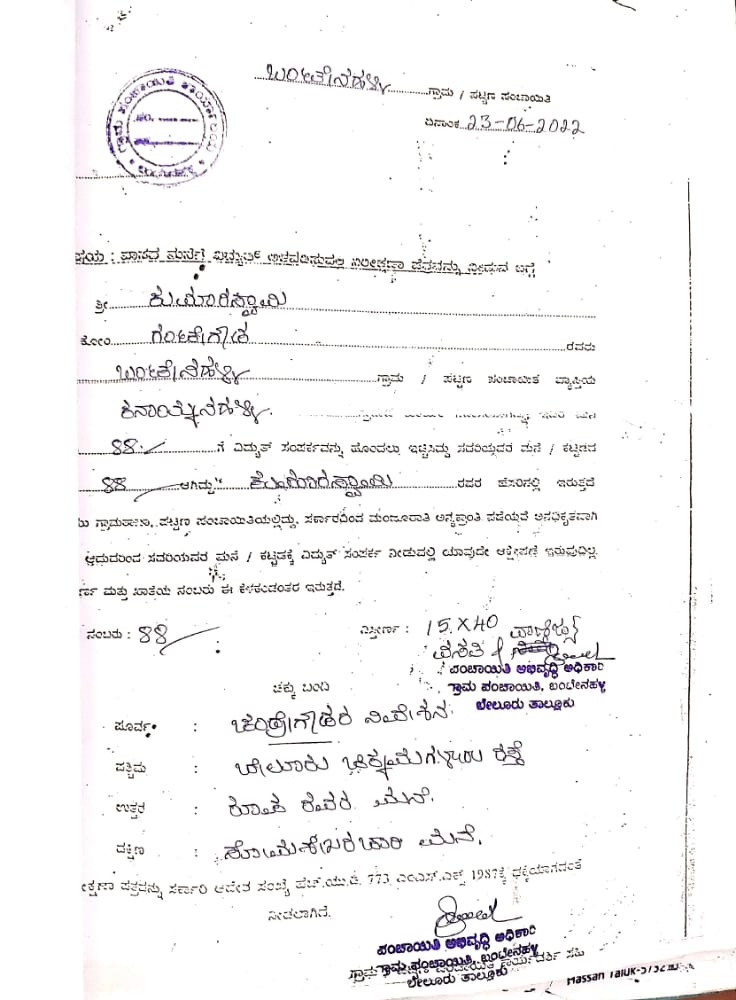 ಬಂಟೇನಹಳ್ಳಿ ಗ್ರಾಮ / ಪಟ್ಟಣ ಪಂಚಾಯಿತಿ
ಗ್ರಾಮ ಪಂಚಾಯಿತಿ ಕಾರ್ಯಾಲಯ
ದಿನಾಂಕ 23-06-2022
ಷಯ : ವಾಸದ ಮನೆಗೆ ವಿದ್ಯುತ್ ಅಳವಡಿಸುವಲ್ಲಿ ನಿರೀಕ್ಷಣಾ ಪತ್ರವನ್ನು ನೀಡುವ ಬಗ್ಗೆ
ಶ್ರೀ ಕುಮಾರಸ್ವಾಮಿ
ಕೋಂ ಗಂಟೇಗೌಡ ರವರು
ಬಂಟೇನಹಳ್ಳಿ ಗ್ರಾಮ / ಪಟ್ಟಣ ಪಂಚಾಯಿತಿ ವ್ಯಾಪ್ತಿಯ
88 ನೆ ವಿದ್ಯುತ್ ಸಂಪರ್ಕವನ್ನು ಹೊಂದಲು ಇಚ್ಛಿಸಿದ್ದು ಸದರಿಯವರ ಮನೆ / ಕಟ್ಟಡದ
88 ಆಗಿದ್ದು ಕುಮಾರಸ್ವಾಮಿ ರವರ ಹೆಸರಿನಲ್ಲಿ ಇರುತ್ತದೆ
ಪಟ್ಟಣ ಪಂಚಾಯಿತಿಯಲ್ಲಿದ್ದು, ಸರ್ಕಾರದಿಂದ ಮಂಜೂರಾತಿ ಪಡೆಯದೆ ಅನಧಿಕೃತವಾಗಿ
ಆದುದರಿಂದ ಸದರಿಯವರ ಮನೆ / ಕಟ್ಟಡಕ್ಕೆ ವಿದ್ಯುತ್ ಸಂಪರ್ಕ ನೀಡುವಲ್ಲಿ ಯಾವುದೇ ಆಕ್ಷೇಪಣೆ ಇರುವುದಿಲ್ಲ.
ರ್ಣ ಮತ್ತು ಖಾತೆಯ ನಂಬರು ಈ ಕೆಳಕಂಡಂತರ ಇರುತ್ತದೆ.
ನಂಬರು : 88 ವಿಸ್ತೀರ್ಣ : 15 X 40
ವಸತಿ
ಪಂಚಾಯಿತಿ ಅಭಿವೃದ್ಧಿ ಅಧಿಕಾರಿ
ಗ್ರಾಮ ಪಂಚಾಯಿತಿ, ಬಂಟೇನಹಳ್ಳಿ
ಬೇಲೂರು ತಾಲ್ಲೂಕು
ಚಕ್ಕು ಬಂದಿ
ಪೂರ್ವ : ಚಂದ್ರೇಗೌಡರ ನಿವೇಶನ
ಪಶ್ಚಿಮ : ಬೇಲೂರು ಚಿಕ್ಕಮಗಳೂರು ರಸ್ತೆ
ಉತ್ತರ : ರವರ ಮನೆ.
ದಕ್ಷಿಣ : ಸೋಮಶೇಖರಚಾರಿ ಮನೆ.
ಕ್ಷಣಾ ಪತ್ರವನ್ನು ಸರ್ಕಾರಿ ಆದೇಶ ಸಂಖ್ಯೆ ಹೆಚ್.ಯು.ಡಿ. 773 ಎಂ.ಎನ್.ಎಕ್ಸ್ 1987ಕ್ಕೆ
ನೀಡಲಾಗಿದೆ.
ಪಂಚಾಯಿತಿ ಅಭಿವೃದ್ಧಿ ಅಧಿಕಾರಿ
ಗ್ರಾಮ ಪಂಚಾಯಿತಿ, ಬಂಟೇನಹಳ್ಳಿ
ಬೇಲೂರು ತಾಲ್ಲೂಕು
Hassan Taluk